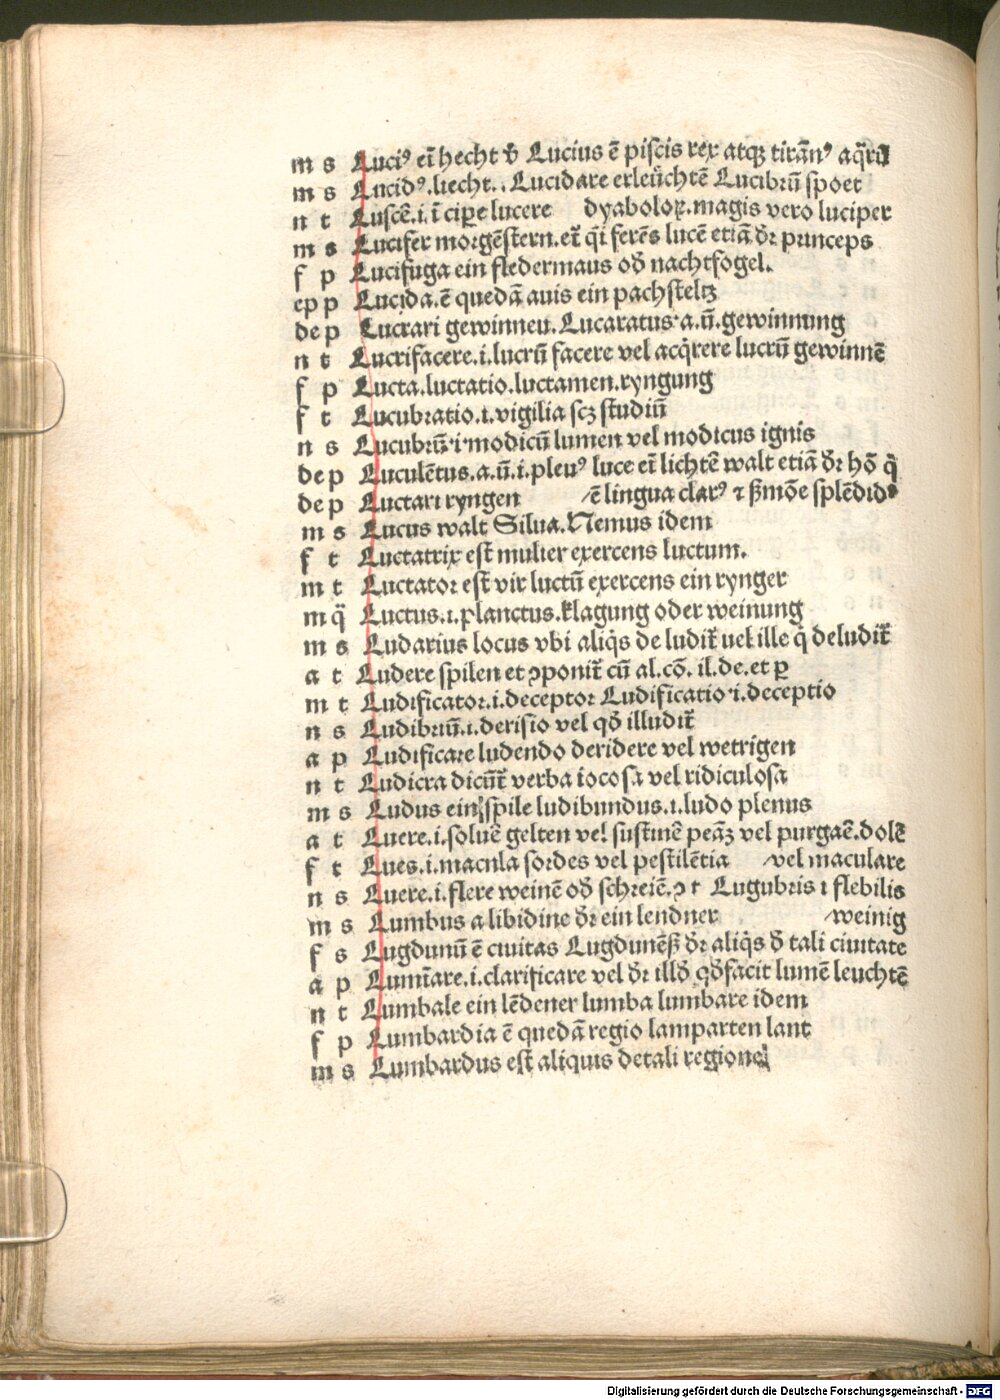 m s Luciꝰ eī hecht v̄ Lucius ē piſcis rex atqꝫ tirānꝰ aq̄rū
m s Lucidꝰ.liecht.. Lucidare erleüchtē Lucibrū ſpoet
n t Luſcē.i.ī ciꝑe lucere dyaboloꝝ.magis vero luciper
m s Lucifer morgēſtern.et̄ q̄i ferēs lucē etiā dr̄ princeps
f p Lucifuga ein fledermaus od̄ nachtfogel.
ep p Lucida.ē quedā auis ein pachſteltꝫ
de p Lucrari gewinneu. Lucaratus.a.ū.gewinnung
n t Lucrifacere.i.lucrū facere vel acq̄rere lucrū gewinnē
f p Lucta.luctatio.luctamen.ryngung
f t Lucubratio.i.vigilia ſcꝫ ſtudiū
n s Lucubrū.i.modicū lumen vel modicus ignis
de p Luculētus.a.ū.i.pleuꝰ luce eī lichtē walt etiā dr̄ hō q̄
de p Luctari ryngen ē lingua clarꝰ ⁊ ẞmōe ſplēdidꝰ
m s Lucus walt Silua.Nemus idem
f t Luctatrix eſt mulier exercens luctum.
m t Luctator eſt vir luctū exercens ein rynger
m q̈ Luctus.i.planctus.klagung oder weinung
m s Ludarius locus vbi aliq̄s de ludit̄ uel ille q̄ deludit̄
a t Ludere ſpilen et ꝯponit̄ cū al.cō. il.de.et ꝑ
m t Ludificator.i.deceptor Ludificatio.i.deceptio
n s Ludibriū.i.deriſio vel qd̄ illudit̄
a p Ludificare ludendo deridere vel wetrigen
n t Ludicra dicūt̄ verba iocoſa vel ridiculoſa
m s Ludus ein ſpile ludibundus.i.ludo plenus
a t Luere.i.ſoluē gelten vel ſuſtinē peāꝫ vel purgaē.dolē
f t Lues.i.macnla ſordes vel peſtilētia vel maculare
n s Luere.i.flere weinē od̄ ſchreiē.ꝯ t Lugubris i flebilis
m s Lumbus a libidine dr̄ ein lendner weinig
f s Lugdunū ē ciuitas Lugdunēß dr̄ aliq̄s d̄ tali ciuitate
a p Lumīare.i.clarificare vel dr̄ illd̄ qd̄facit lumē leuchtē
n t Lumbale ein lēdener lumba lumbare idem
f p Lumbardia ē quedā regio lamparten lant
m s Lumbardus eſt aliquis detali regione
Digitalisierung gefördert durch die Deutsche Forschungsgemeinschaft - DFG